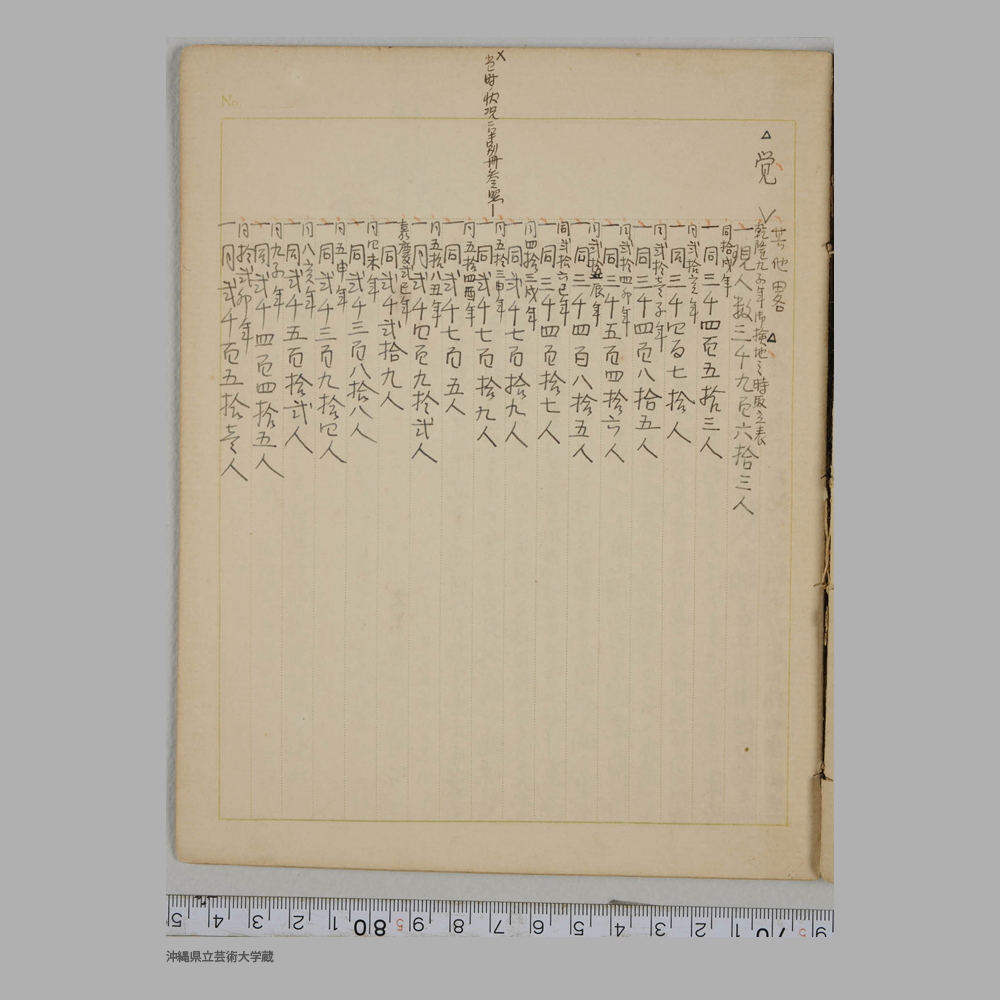 △覚
其他畧
乾隆九子年御検地之時取立表
一現人数三千九百六拾三人
同拾戌年
一同三千四百五拾三人
同弐拾亥年
一同三千四百七拾人
同弐拾壱子年
一同三千四百八拾五人
同弐拾四卯年
一同三千五百四拾六人
同弐拾五辰年
一同三千四百八拾五人
同弐拾六巳年
一同三千四百拾七人
同四拾三戌年
一同弐千七百拾九人
同五拾三申年
一同弐千七百拾九人
同五拾四酉年
一同弐千七百五人
同五拾八丑年
一同弐千四百九拾弐人
嘉慶弐巳年
一同弐千弐拾九人
同四未年
一同弐千三百八拾八人
同五申年
一同弐千三百九拾四人
同八亥年
一同弐千五百拾弐人
同九子年
一同弐千四百四拾五人
同拾弐卯年
一同弐千百五拾壱人
×当時状況ニ関別冊参照
No
沖縄県立芸術大学蔵